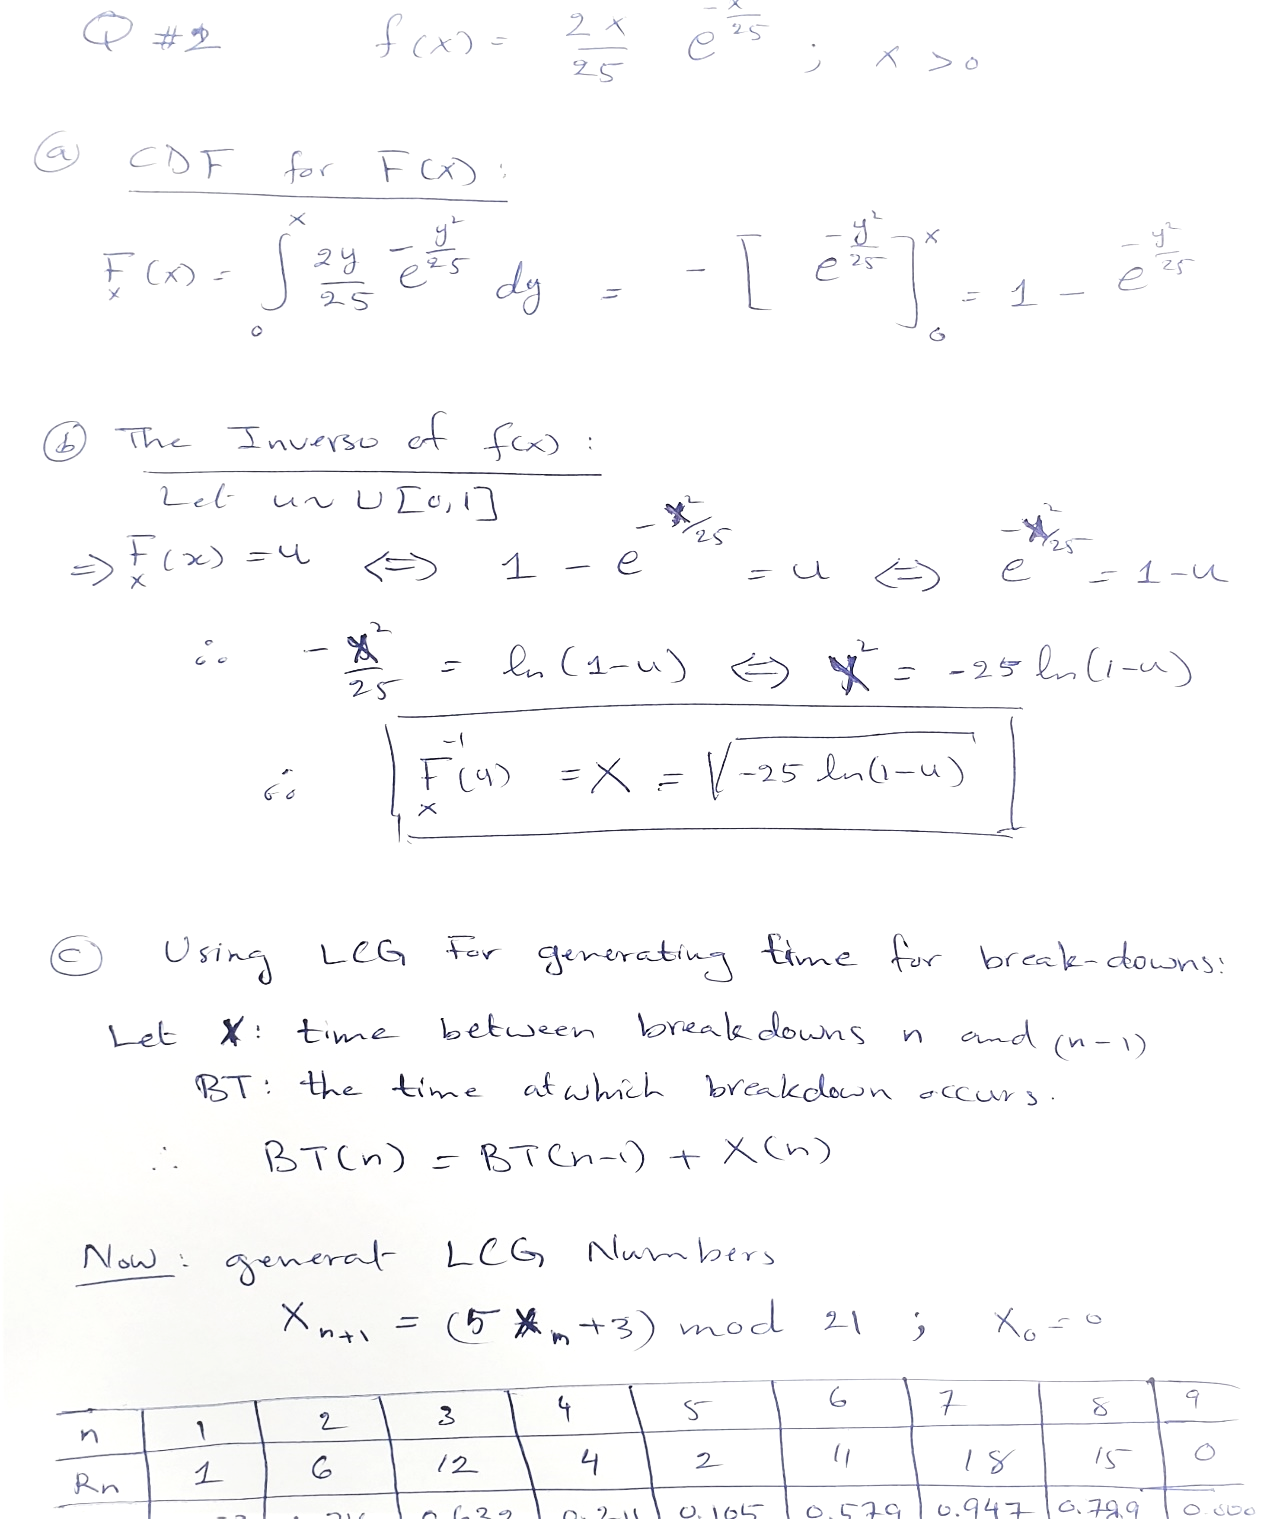 Q #2 f(x) = 2x/25 e^{-x/25} ; x > 0
(a) CDF for F(x) :
F_x(x) = ∫_0^x 2y/25 e^{-y²/25} dy = - [ e^{-y²/25} ]_0^x = 1 - e^{-y²/25}
(b) The Inverse of f(x) :
Let u ~ U[0,1]
=> F_x(x) = u <=> 1 - e^{-x²/25} = u <=> e^{-x²/25} = 1-u
∴ -x²/25 = ln(1-u) <=> x² = -25 ln(1-u)
∴ F_x^{-1}(u) = X = √(-25 ln(1-u))
(c) Using LCG For generating time for break-downs:
Let X: time between breakdowns n and (n-1)
BT: the time at which breakdown occurs.
∴ BT(n) = BT(n-1) + X(n)
Now: general LCG Numbers
X_{n+1} = (5 X_n + 3) mod 21 ; X_0 = 0
n 1 2 3 4 5 6 7 8 9
Rn 1 6 12 4 2 11 18 15 0
0.105 0.579 0.947 0.789